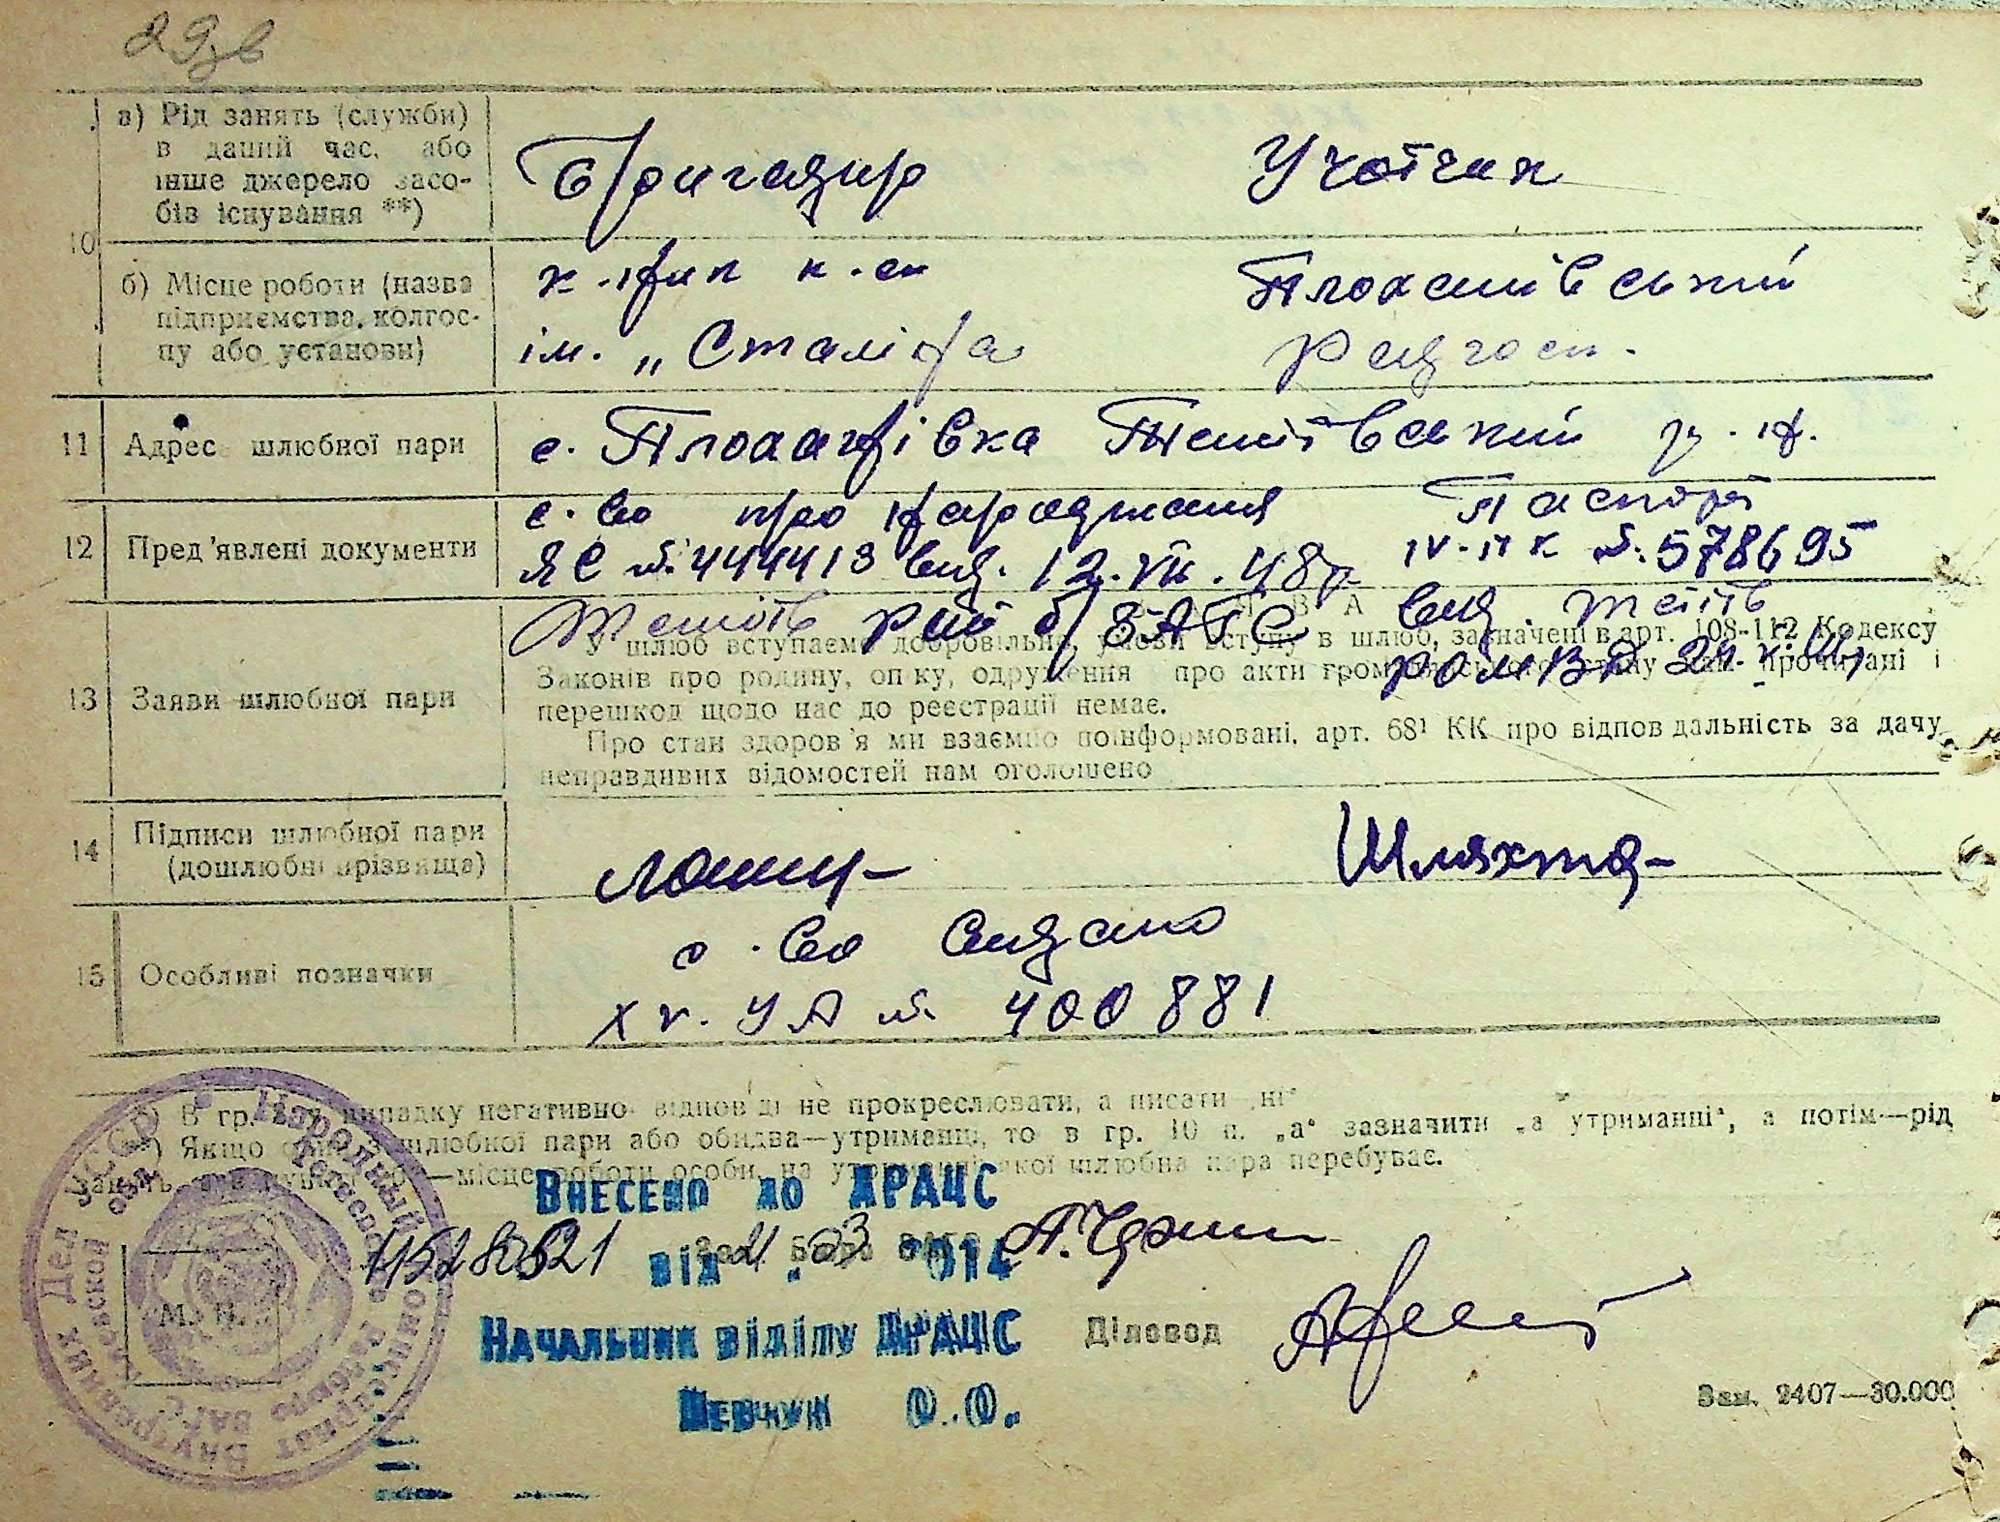 29зв
а) Рід занять (служби)
в даний час, або
інше джерело засо-
бів існування **)
Бригадир
Учотчик
10
б) Місце роботи (назва
підприємства, колгос-
пу або установи)
ім. „Сталіна
Плоханівський
Радгосп.
11 Адрес шлюбної пари
с. Плоханівка Тетіївський р-н.
12 Пред'явлені документи
с-во про народження
ЯС №444413 вид. 12.VII.48р
Тетіїв рай б/ЗАГС
Паспорт
IV-ПК №.578695
вид. Тетіїв
РОМВД
13 Заяви шлюбної пари
У шлюб вступаємо добровільно, умови вступу в шлюб, зазначені в арт. 108-112 Кодексу
Законів про родину, опіку, одруження про акти громадянського стану нам прочитані і
перешкод щодо нас до реєстрації немає.
Про стан здоров'я ми взаємно поінформовані, арт. 68¹ КК про відповідальність за дачу
неправдивих відомостей нам оголошено
14 Підписи шлюбної пари
(дошлюбні прізвища)
Шляхта
15 Особливі позначки
с-во видано
№ 400881
*) В гр. випадку негативної відповіді не прокреслювати, а писати „ні"
**) Якщо один з шлюбної пари або обидва—утриманці, то в гр. 10 п. „а" зазначити „а утриманні", а потім—рід
занять —місце роботи особи, на утриманні якої шлюбна пара перебуває.
Внесено до ДРАЦС
від 2014
Начальник відділу ДРАЦС
Шевчук О.О.
Діловод
М. П.
Народный Комиссариат Внутренних Дел УССР
Зам. 2407—30.000